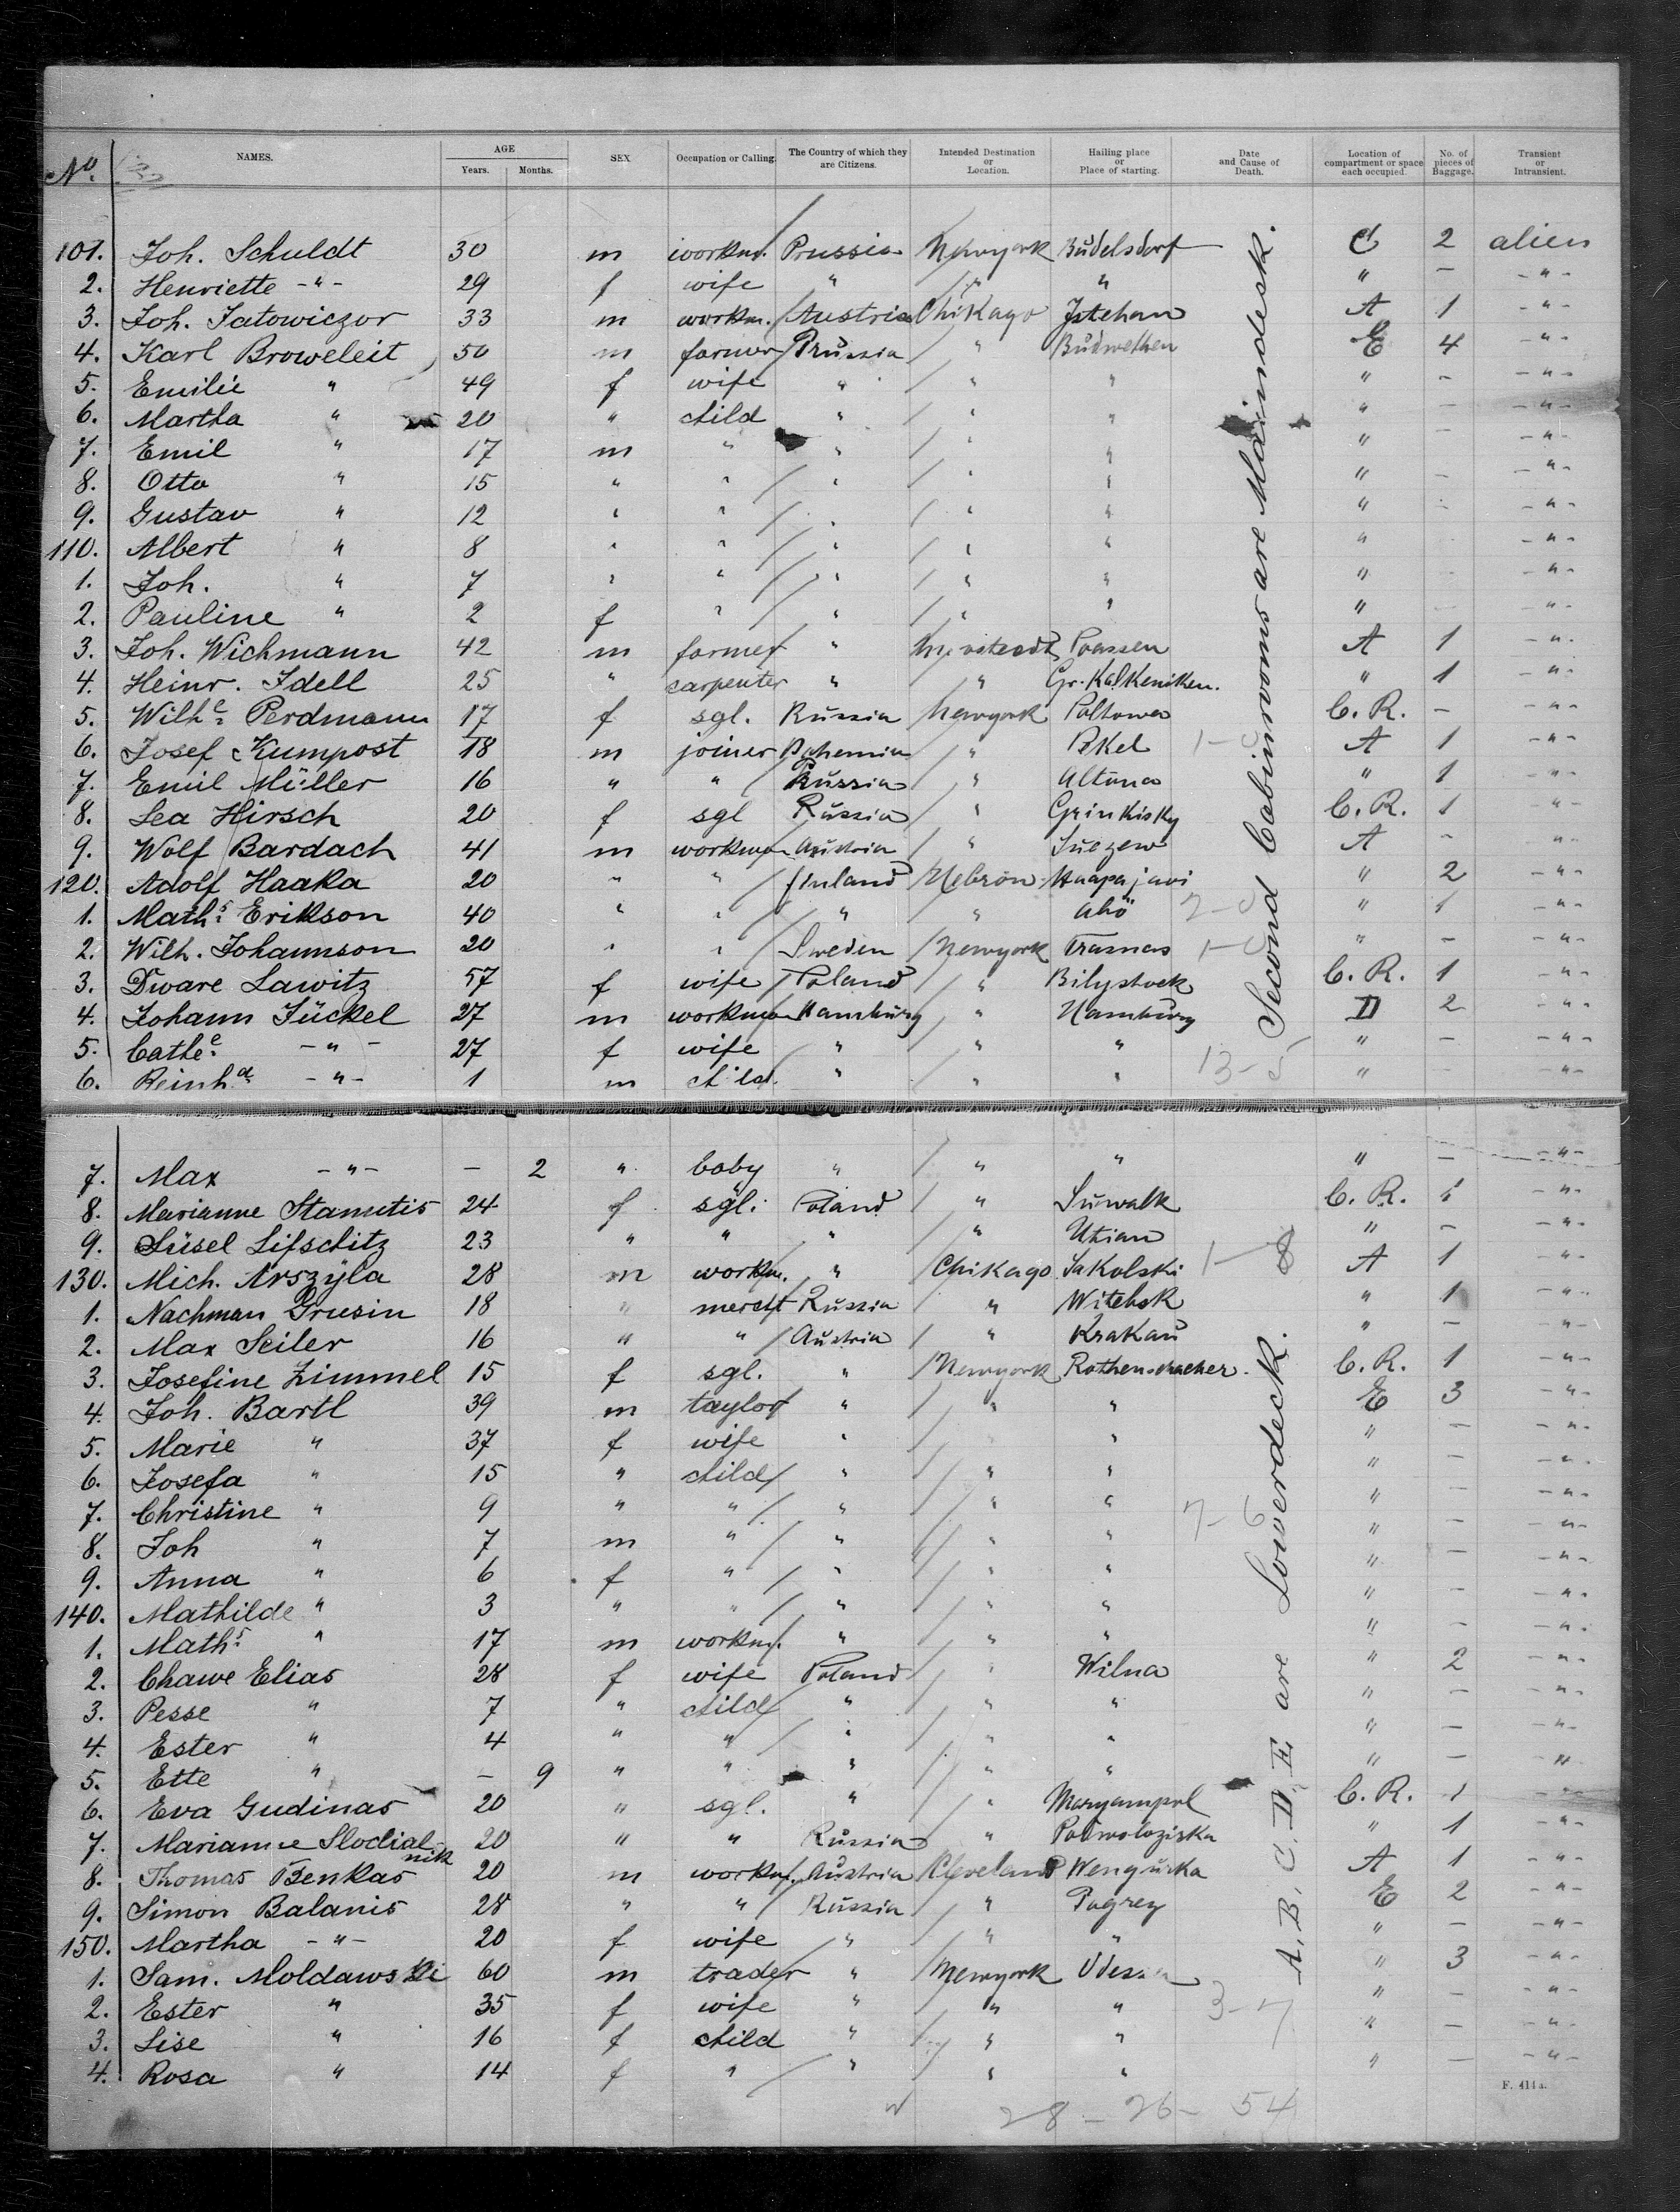 No. NAMES. AGE Years. Months. SEX Occupation or Calling. The Country of which they are Citizens. Intended Destination or Location. Hailing place or Place of starting. Date and Cause of Death. Location of compartment or space each occupied. No. of pieces of Baggage. Transient or Intransient.
101. Joh. Schuldt 30 m workm. Prussia Newyork Büdelsdorf C 2 alien
2. Henriette -"- 29 f wife " " " " - -"-
3. Joh. Jatowiczor 33 m workm. Austria Chikago Istehan A 1 -"-
4. Karl Broweleit 50 m farmer Prüssia " Büdwethen E 4 -"-
5. Emilie " 49 f wife " " " " - -"-
6. Martha " 20 " child " " " " - -"-
7. Emil " 17 m " " " " " -"-
8. Otto " 15 " " " " " " - -"-
9. Gustav " 12 " " " " " " - -"-
110. Albert " 8 " " " " " " -"-
1. Joh. " 7 " " " " " " -"-
2. Pauline " 2 f " " " " " - -"-
3. Joh. Wichmann 42 m farmer " Poassen A 1 -"-
4. Heinr. Idell 25 " carpenter " " Gr. Kalkeniken. " 1 -"-
5. Wilhe. Perdmann 17 f sgl. Russia Newyork Poltowa C. R. - -"-
6. Josef Kumpost 18 m joiner Bohemia " Pikel A 1 -"-
7. Emil Müller 16 " " Prüssia " Altona " 1 -"-
8. Lea Hirsch 20 f sgl Russia " Grinkisky C. R. 1 -"-
9. Wolf Bardach 41 m workman Austria " Suczew A - -"-
120. Adolf Haaka 20 " " Finland Hebron Haapajavi " 2 -"-
1. Maths. Erikson 40 " " " " Abö " 1 -"-
2. Wilh. Johannson 20 " " Sweden Newyork Trasnas " - -"-
3. Dware Lawitz 57 f wife Poland " Bilystock C. R. 1 -"-
4. Johann Jückel 27 m workman Hamburg " Hamburg D 2 -"-
5. Cathe. -"- 27 f wife " " " " - -"-
6. Reinhd. -"- 1 m child. " " " " - -"-
7. Max -"- - 2 " baby " " " " - -"-
8. Marianne Stamutis 24 f sgl. Poland " Suwalk C. R. 1 -"-
9. Süsel Lifschitz 23 " " " " Utian " - -"-
130. Mich. Arszyla 28 m workm. " Chikago Sakolski A 1 -"-
1. Nachman Grusin 18 " mercht Russia " Witebsk " 1 -"-
2. Max Seiler 16 " " Austria " Krakau " - -"-
3. Josefine Zimmel 15 f sgl. " Newyork Rothenschacher. C. R. 1 -"-
4. Joh. Bartl 39 m taylor " " " E 3 -"-
5. Marie " 37 f wife " " " " - -"-
6. Josefa " 15 " child " " " " - -"-
7. Christine " 9 " " " " " " - -"-
8. Joh " 7 m " " " " " - -"-
9. Anna " 6 f " " " " " - -"-
140. Mathilde " 3 " " " " " " - -"-
1. Maths. " 17 m workm. " " " " - -"-
2. Chawe Elias 28 f wife Poland " Wilna " 2 -"-
3. Pesse " 7 " child " " " " - -"-
4. Ester " 4 " " " " " " - -"-
5. Ette " - 9 " " " " " " - "
6. Eva Gudinas 20 " sgl. " " Maryampol C. R. 1 -"-
7. Marianne Slodialnik 20 " " Russia " Podwoloziska " 1 -"-
8. Thomas Benkas 20 m workm. Austria Cleveland Wengurka A 1 -"-
9. Simon Balanis 28 " " Russia " Pogrey E 2 -"-
150. Martha -"- 20 f wife " " " " - -"-
1. Sam. Moldawski 60 m trader " Newyork Odessa " 3 -"-
2. Ester " 35 f wife " " " " - -"-
3. Lise " 16 f child " " " " - -"-
4. Rosa " 14 f " " " " " - -"-
Second Cabinrooms are Maindesk.
A. B. C. D. E are Lowerdeck.
13-5
7-6
3-7
28 - 26 - 54
F. 414a.